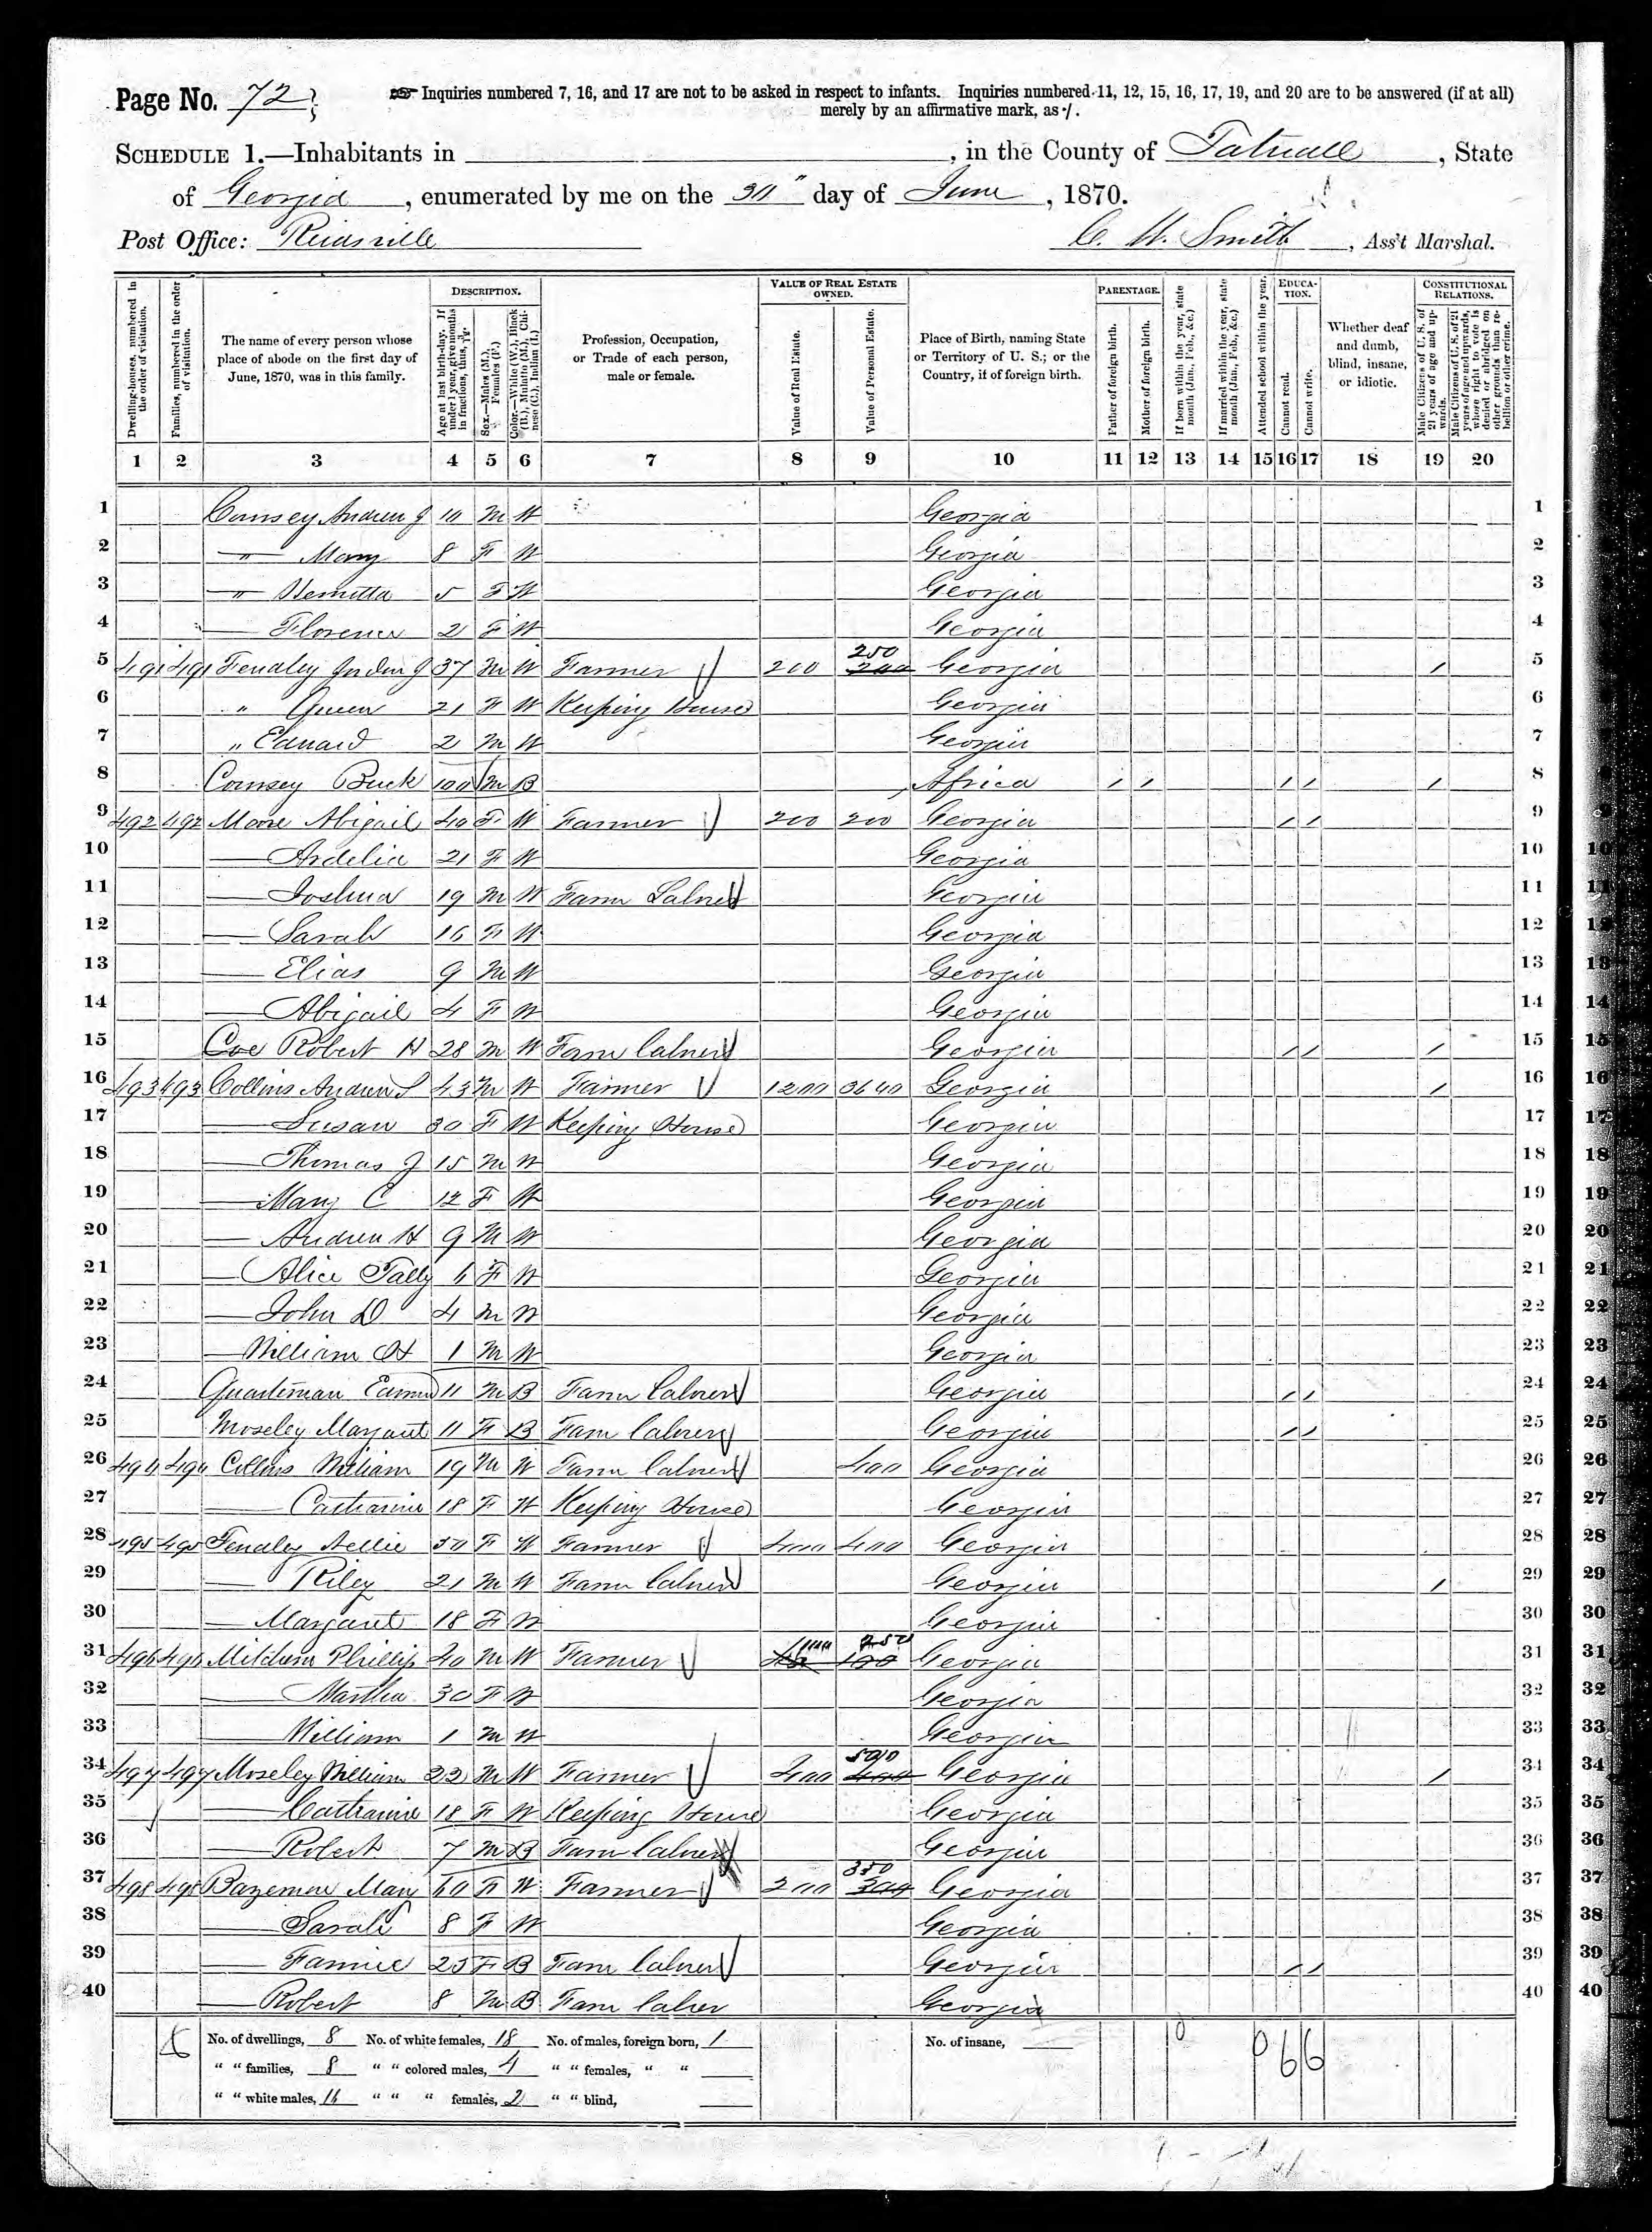 Page No. 72
Inquiries numbered 7, 16, and 17 are not to be asked in respect to infants. Inquiries numbered 11, 12, 15, 16, 17, 19, and 20 are to be answered (if at all)
merely by an affirmative mark, as /.
SCHEDULE 1.—Inhabitants in , in the County of Tatnall , State
of Georgia , enumerated by me on the 30" day of June , 1870.
Post Office: Reidsville C. H. Smith , Ass't Marshal.
Dwelling-houses, numbered in the order of visitation.
Families, numbered in the order of visitation.
The name of every person whose place of abode on the first day of June, 1870, was in this family.
DESCRIPTION.
Age at last birth-day. If under 1 year, give months in fractions, thus, 3/12.
Sex.—Males (M.), Females (F.)
Color.—White (W.), Black (B.), Mulatto (M.), Chinese (C.), Indian (I.)
Profession, Occupation, or Trade of each person, male or female.
VALUE OF REAL ESTATE OWNED.
Value of Real Estate.
Value of Personal Estate.
Place of Birth, naming State or Territory of U. S.; or the Country, if of foreign birth.
PARENTAGE.
Father of foreign birth.
Mother of foreign birth.
If born within the year, state month (Jan., Feb., &c.)
If married within the year, state month (Jan., Feb., &c.)
Attended school within the year.
EDUCATION.
Cannot read.
Cannot write.
Whether deaf and dumb, blind, insane, or idiotic.
CONSTITUTIONAL RELATIONS.
Male Citizens of U. S. of 21 years of age and upwards.
Male Citizens of U. S. of 21 years of age and upwards, whose right to vote is denied or abridged on other grounds than rebellion or other crime.
1 2 3 4 5 6 7 8 9 10 11 12 13 14 15 16 17 18 19 20
1 Comsey Andrew J 10 M W Georgia 1
2 — " — Mary 8 F W Georgia 2
3 — " — Henritta 5 F W Georgia 3
4 — Florence 2 F W Georgia 4
5 491 491 Fendley J 37 M W Farmer 200 250 200 Georgia / 5
6 " Queen 21 F W Keeping House Georgia 6
7 " Edward 2 M W Georgia 7
8 Comsey Buck 100 M B Africa / / / / / 8
9 492 492 Moore Abigail 40 F W Farmer 200 200 Georgia / / 9
10 — Ardelia 21 F W Georgia 10
11 — Joshua 19 M W Farm Laborer Georgia 11
12 — Sarah 16 F W Georgia 12
13 — Elias 9 M W Georgia 13
14 — Abigail 4 F W Georgia 14
15 Coe Robert H 28 M W Farm Laborer Georgia / / / 15
16 493 493 Collins Andrew S 43 M W Farmer 1200 3640 Georgia / 16
17 — Susan 30 F W Keeping House Georgia 17
18 — Thomas J 15 M W Georgia 18
19 — Mary C 12 F W Georgia 19
20 — Andrew H 9 M W Georgia 20
21 — Alice Tally 6 F W Georgia 21
22 — John D 4 M W Georgia 22
23 — William H 1 M W Georgia 23
24 Quarteman Edmund 11 M B Farm Laborer Georgia / / 24
25 Moseley Margaret 11 F B Farm Laborer Georgia / / 25
26 494 494 Collins William 19 M W Farm Laborer 400 Georgia 26
27 — Catharine 18 F W Keeping House Georgia 27
28 495 495 Fendley Nellie 50 F W Farmer 400 400 Georgia 28
29 — Riley 21 M W Farm Laborer Georgia / 29
30 — Margaret 18 F W Georgia 30
31 496 496 Mitchum Phillip 40 M W Farmer 250 100 Georgia 31
32 — Martha 30 F W Georgia 32
33 — William 1 M W Georgia 33
34 497 497 Moseley William 22 M W Farmer 400 500 400 Georgia / 34
35 — Catharine 18 F W Keeping House Georgia 35
36 — Robert 7 M B Farm Laborer Georgia 36
37 498 498 Bazemore Mary 60 F W Farmer 200 350 300 Georgia 37
38 — Sarah 8 F W Georgia 38
39 — Fannie 25 F B Farm Laborer Georgia / / 39
40 — Robert 8 M B Farm Laborer Georgia 40
No. of dwellings, 8 No. of white females, 18 No. of males, foreign born, 1 No. of insane,
" " families, 8 " " colored males, 4 " " females, " "
" " white males, 16 " " " females, 2 " " blind,
0 0 6 6